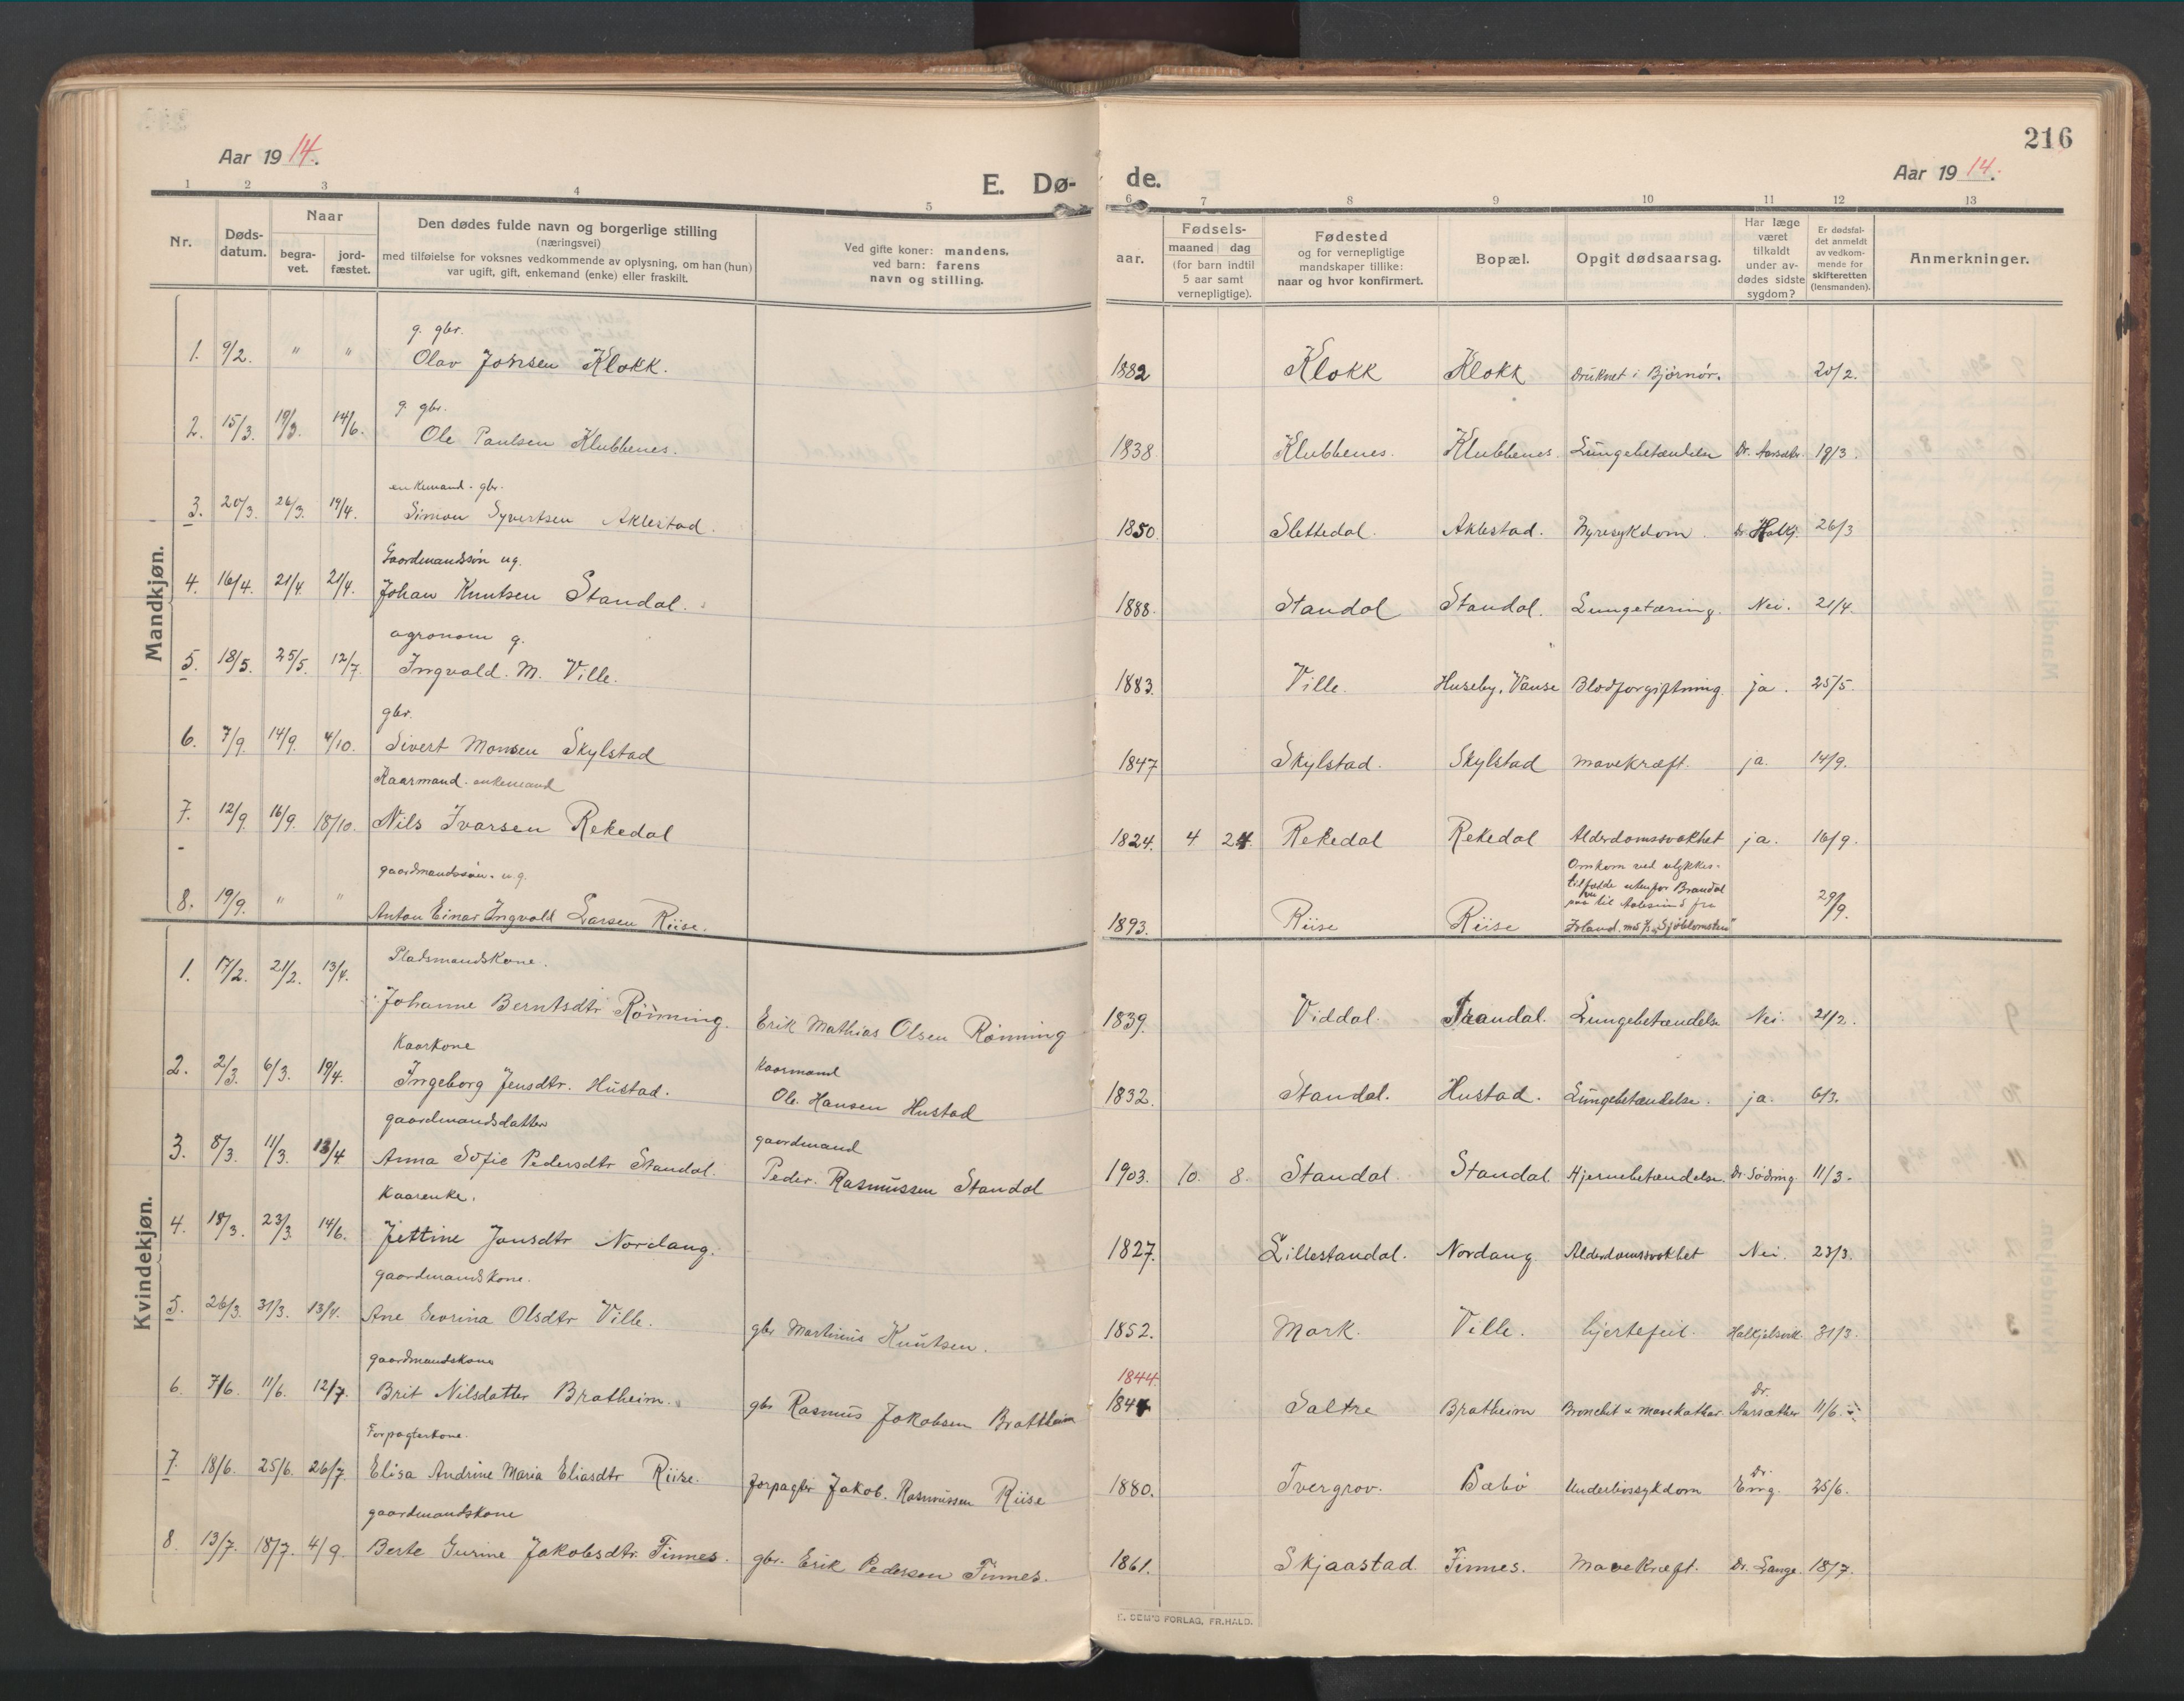 216
Aar 1914.
Aar 1914.
E. Dø-
de.
1 2 3 4 5 6 7 8 9 10 11 12 13
Nr.
Døds-
datum.
Naar
begra-
vet.
jord-
fæstet.
Den dødes fulde navn og borgerlige stilling
(næringsvei)
med tilføielse for voksnes vedkommende av oplysning, om han (hun)
var ugift, gift, enkemand (enke) eller fraskilt.
Ved gifte koner: mandens,
ved barn: farens
navn og stilling.
Fødsels-
aar.
maaned dag
(for barn indtil
5 aar samt
vernepligtige).
Fødested
og for vernepligtige
mandskaper tillike:
naar og hvor konfirmert.
Bopæl.
Opgit dødsaarsag.
Har læge
været
tilkaldt
under av-
dødes sidste
sygdom?
Er dødsfal-
det anmeldt
av vedkom-
mende for
skifteretten
(lensmanden).
Anmerkninger.
Mandkjøn.
g. gbr.
1. 9/2. " " Olav Jonsen Klokk. 1882 Klokk Klokk Druknet i Bjørnør. 20/2.
g. gbr.
2. 15/3. 19/3. 14/6. Ole Paulsen Klubbenes. 1838 Klubbenes. Klubbenes. Lungebetændelse Dr. Aarsethr. 19/3.
enkemand. gbr.
3. 20/3. 26/3. 19/4. Simon Syvertsen Aklestad. 1850. Slettedal. Aklestad. Nyresykdom. Dr. Halkj. 26/3
Gaardmandssøn ug.
4. 16/4. 21/4. 21/4. Johan Knutsen Standal. 1888. Standal Standal. Lungetæring. Nei. 21/4.
agronom g.
5. 18/5. 25/5. 12/7. Ingvald. M. Ville. 1883. Ville. Huseby, Vanse Blodforgiftning. ja. 25/5.
gbr.
6. 7/9. 14/9. 4/10. Sivert Monsen Skylstad 1847 Skylstad. Skylstad mavekræft. ja. 14/9.
Kaarmand. enkemand
7. 12/9. 16/9. 18/10. Nils Ivarsen Rekedal 1824. 4 24. Rekedal Rekedal Alderdomssvakhet ja. 16/9.
gaardmandssøn. ug.
Omkom ved ulykkes-
tilfælde utenfor Brandal
paa vei til Aalesund fra
8. 19/9. " " Anton Einar Ingvald Larsen Riise. 1893. Riise Riise Island. med "Sjøblomsten" 29/9.
Kvindekjøn.
Pladsmandskone.
1. 17/2. 21/2. 13/4. Johanne Berntsdtr Rønning. Erik Mathias Olsen Rønning 1839. Viddal. Trandal. Lungebetændelse Nei. 21/2.
Kaarkone
Kaarmand
2. 2/3. 6/3. 19/4. Ingeborg Jensdtr. Hustad. Ole Hansen Hustad 1832. Standal. Hustad. Lungebetændelse. ja. 6/3.
gaardmandsdatter
gaardmand
3. 8/3. 11/3. 13/4. Anna Sofie Pedersdtr Standal. Peder. Rasmussen Standal 1903. 10. 8. Standal. Standal. Hjernebetændelse. Dr. Søding. 11/3.
Kaarenke.
4. 18/3. 23/3. 14/6. Jettine Jonsdtr Nordang. 1827. Lillestandal. Nordang Alderdomssvakhet Nei. 23/3.
gaardmandskone.
5. 26/3. 31/3. 13/4. Ane Sevrina Olsdtr Ville. gbr Martinus Knutsen. 1852. Mork. Ville. hjertefeil. Halkjelsvik. 31/3.
gaardmandskone
1844.
Dr.
6. 7/6. 11/6. 12/7. Brit Nilsdatter Bratheim. gbr Rasmus Jakobsen Brattheim 1844 Saltre Bratheim Bronchit & Mavekatar. Aarsæther 11/6.
Forpagterkone.
Dr.
7. 18/6. 25/6. 26/7. Elisa Andrine Maria Eliasdtr Riise. forpagter Jakob. Rasmussen Riise 1880. Tvergrov. Bæbø Underlivssykdom Eng. 25/6.
gaardmandskone
8. 13/7. 18/7. 4/9. Berte Gurine Jakobsdtr. Finnes. gbr. Erik Pedersen Finnes. 1861. Skjaastad. Finnes. Mavekræft. Dr. Lange. 18/7.
E. SEM'S FORLAG, FR.HALD.